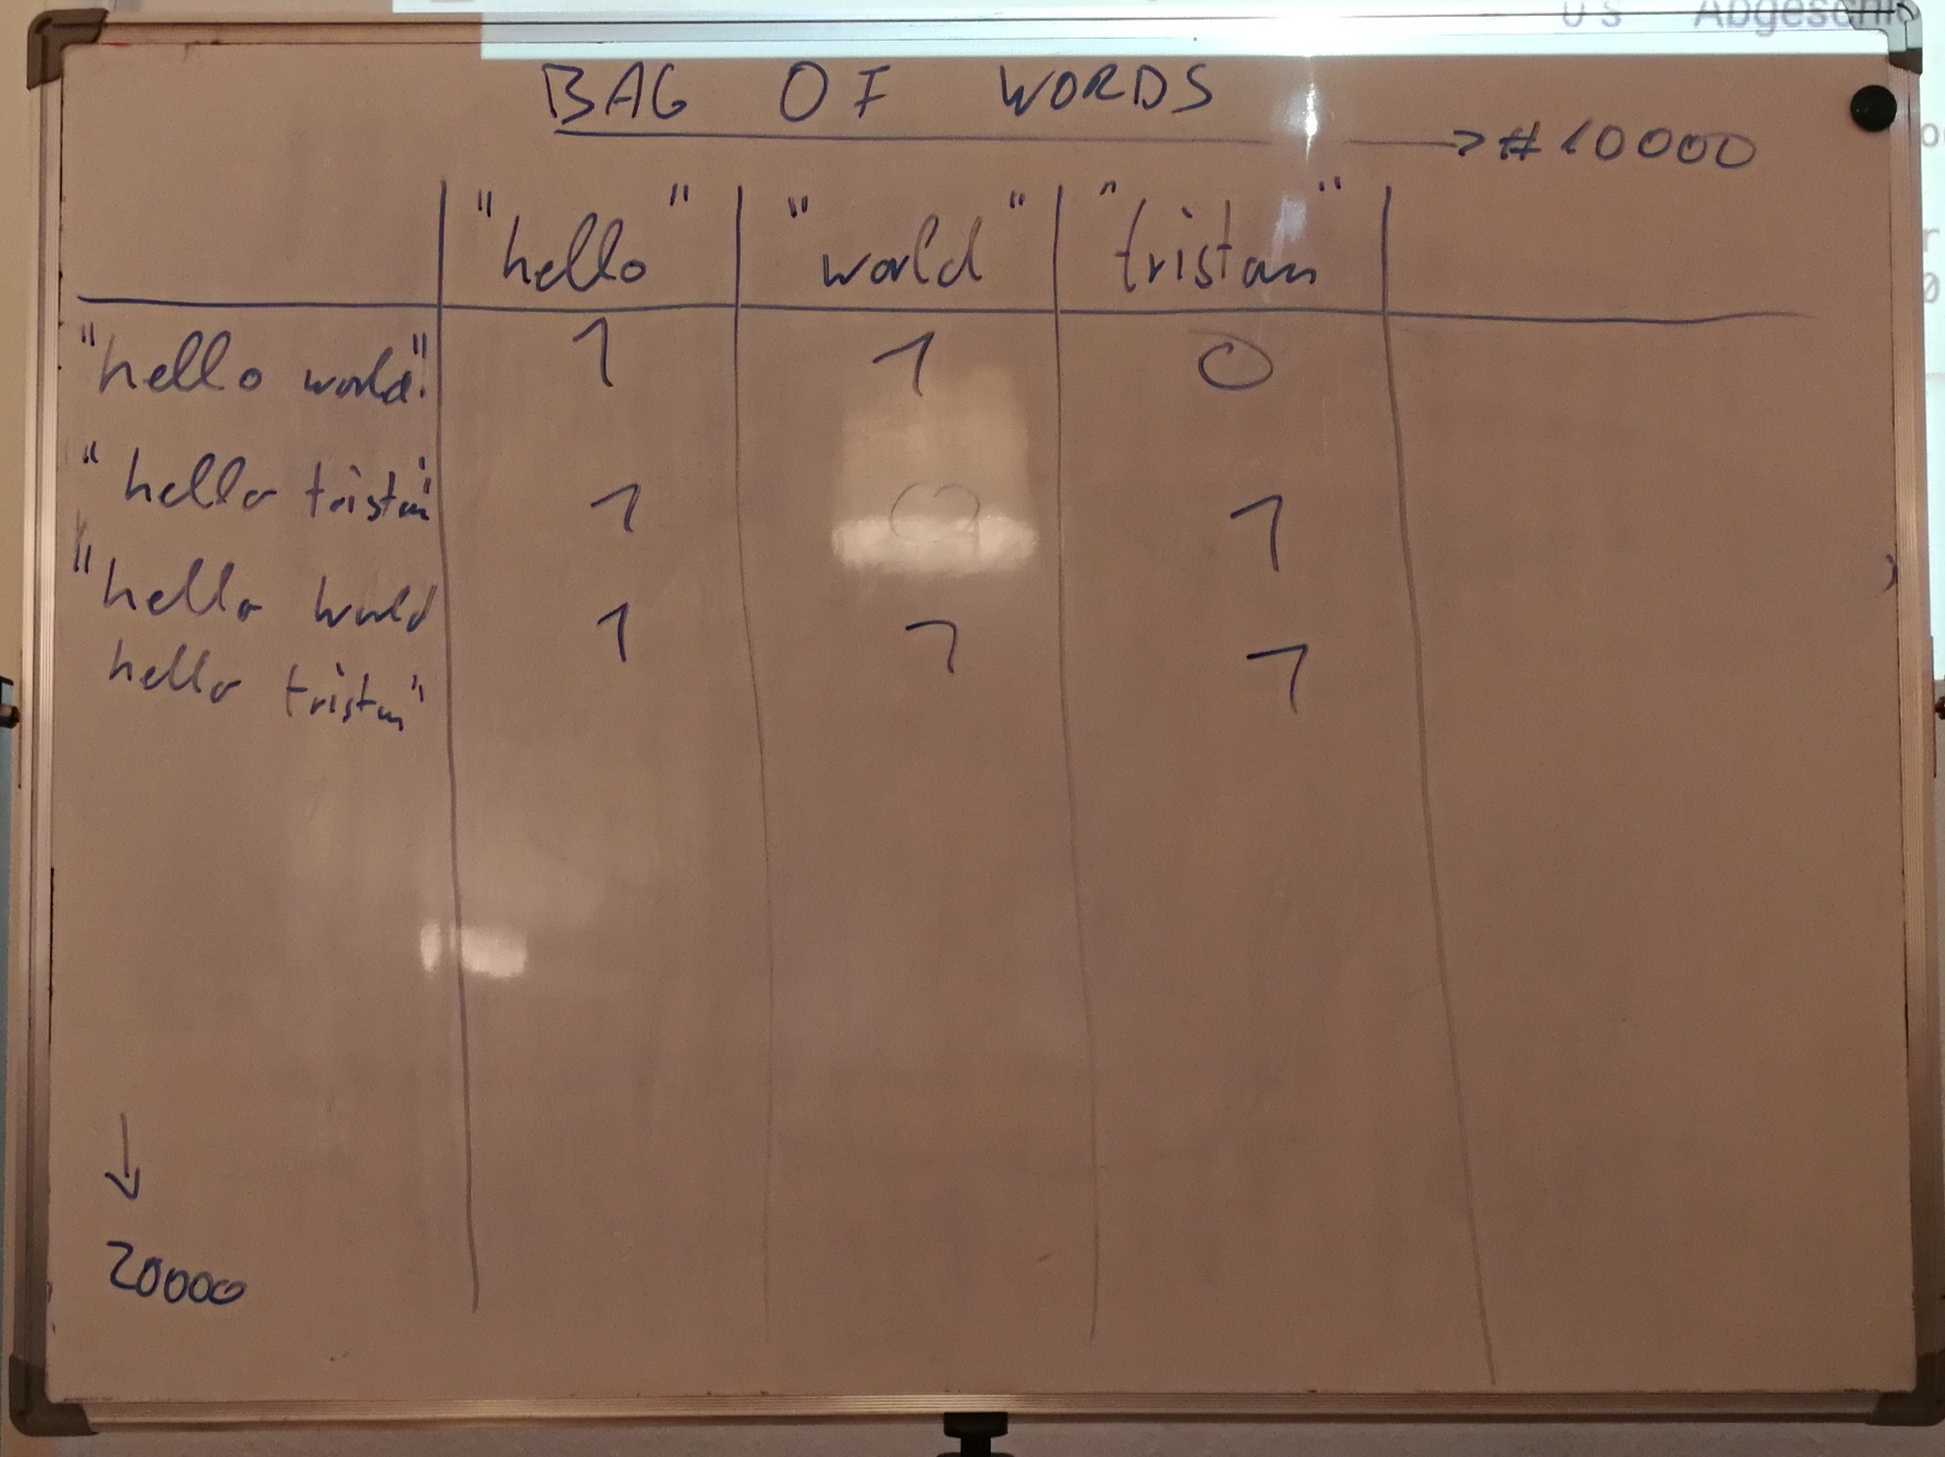 u's Abgeschl
BAG OF WORDS
→ # 10000
"hello" "world" "tristan"
"hello world" 1 1 0
"hello tristan" 1 0 1
"hello world
hello tristan" 1 1 1
↓
20000